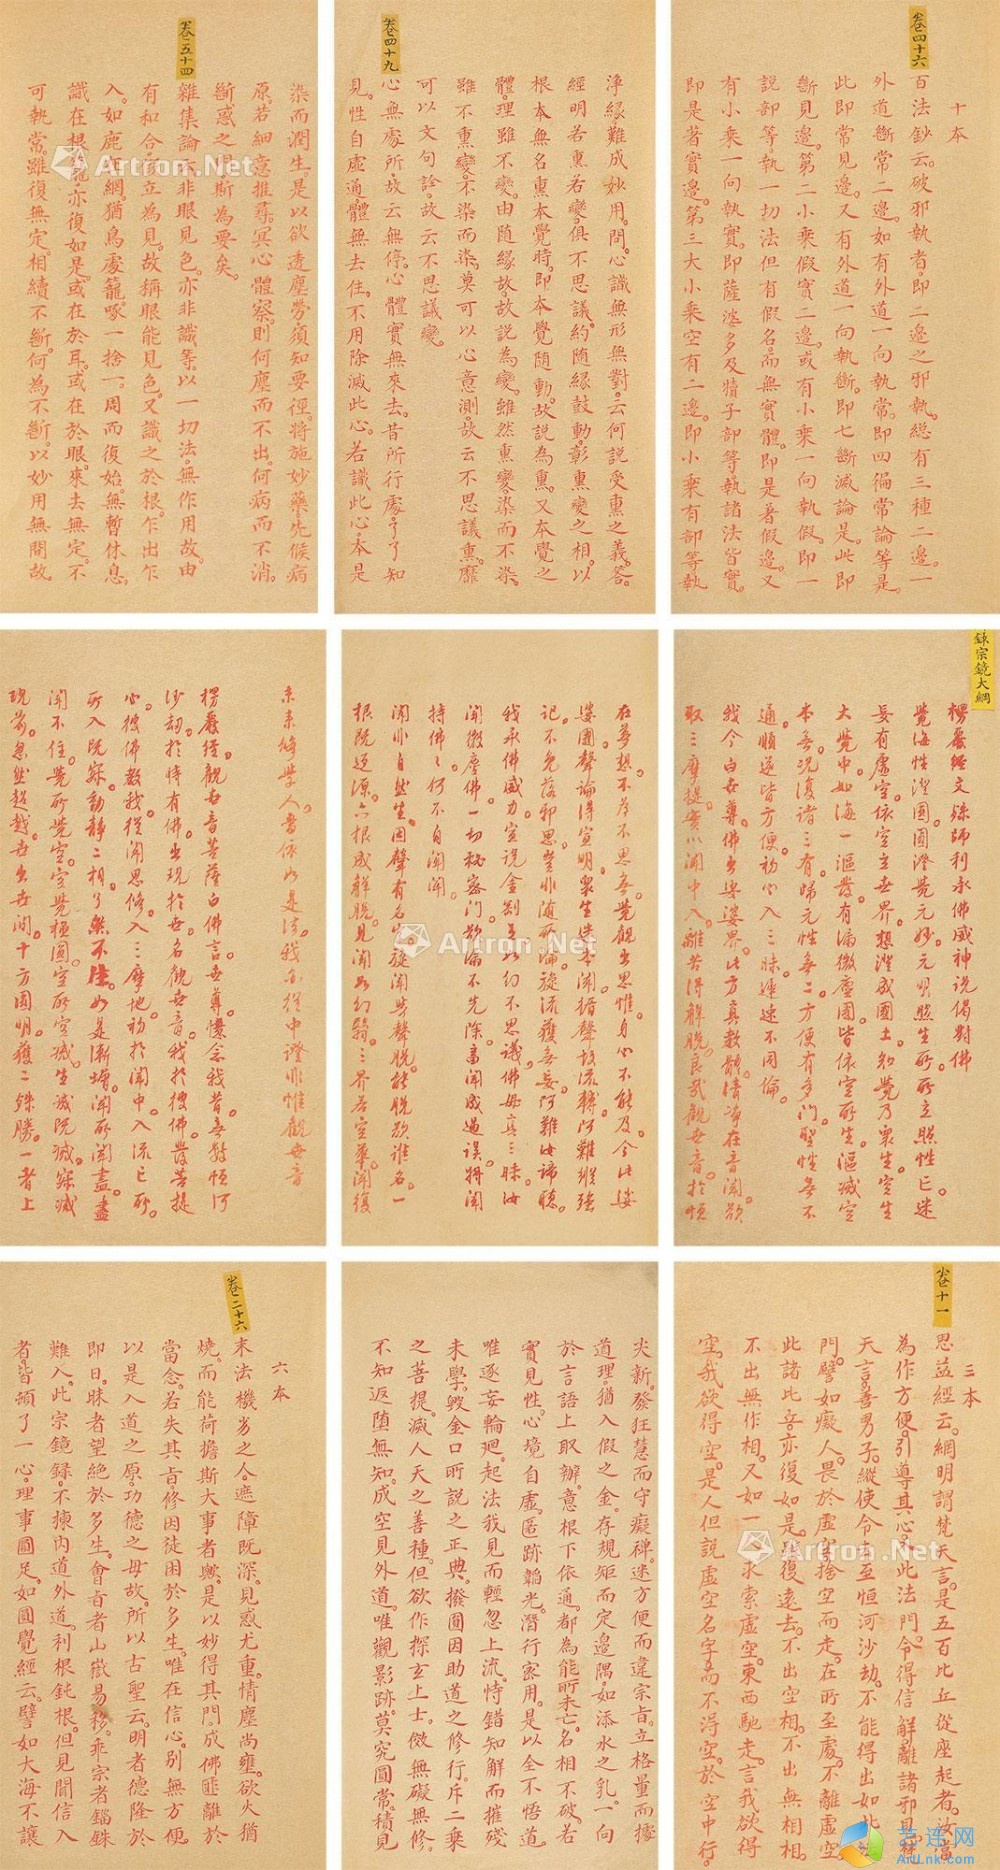 卷四十六
十本
百法鈔云。破邪執者。即二邊之邪執。總有三種二邊。一
外道斷常二邊。如有外道一向執常。即四徧常論等是。
此即常見邊。又有外道一向執斷。即七斷滅論是。此即
斷見邊。第二小乘假實二邊。或有小乘一向執假。即一
說部等。執一切法但有假名。而無實體。即是著假邊。又
有小乘一向執實。即薩婆多及犢子部等。執諸法皆實。
即是著實邊。第三大小乘空有二邊。即小乘有部等執
卷四十九
淨緣難成妙用。問。心識無形無對。云何説受熏之義。答。
經明若熏若變。俱不思議。約隨緣鼓動。彰熏變之相。以
根本無名熏本覺時。即本覺隨動。故説為熏。又本覺之
體。理雖不變。由隨緣故。故説為變。雖然熏變。染而不染。
雖不熏變。不染而染。莫可以心意測。故云不思議熏。靡
可以文句詮。故云不思議變。
心無處所。故云無停。心體實無來去。昔所行處。了了知
見。性自虛通。體無去住。不用除滅此心。若識此心。本是
卷五十四
染而潤生。是以欲透塵勞。須知要徑。將施妙藥。先候病
原。若細意推尋。冥心體察。則何塵而不出。何病而不消。
斷惑之門。斯為要矣。
雜集論云。非眼見色。亦非識等。以一切法無作用故。由
有和合假立為見。故稱眼能見色。又識之於根。乍出乍
入。如鹿在網。猶鳥處籠。啄一捨一。周而復始。無暫休息。
識在根籠。亦復如是。或在於耳。或在於眼。來去無定。不
可執常。雖復無定。相續不斷。何為不斷。以妙用無間故。
錄宗鏡大綱
楞嚴經文殊師利承佛威神說偈對佛
覺海性澄圓。圓澄覺元妙。元明照生所。所立照性亡。迷
妄有虛空。依空立世界。想澄成國土。知覺乃眾生。空生
大覺中。如海一漚發。有漏微塵國。皆依空所生。漚滅空
本無。況復諸三有。歸元性無二。方便有多門。聖性無不
通。順逆皆方便。初心入三昧。遲速不同倫。
我今白世尊。佛出娑婆界。此方真教體。清淨在音聞。欲
取三摩提。實以聞中入。離苦得解脫。良哉觀世音。於恒
在夢想。不為不思無。覺觀出思惟。身心不能及。今此娑
婆國。聲論得宣明。眾生迷本聞。循聲故流轉。阿難縱強
記。不免落邪思。豈非隨所淪。旋流獲無妄。阿難汝諦聽。
我承佛威力。宣說金剛王。如幻不思議。佛母真三昧。汝
聞微塵佛。一切秘密門。欲漏不先除。畜聞成過誤。將聞
持佛佛。何不自聞聞。
聞非自然生。因聲有名字。旋聞與聲脫。能脫欲誰名。一
根既返源。六根成解脫。見聞如幻翳。三界若空華。聞復
未來修學人。當依如是法。我亦從中證。非惟觀世音
楞嚴經。觀世音菩薩白佛言。世尊。憶念我昔。無數恒河
沙劫。於時有佛。出現於世。名觀世音。我於彼佛。發菩提
心。彼佛教我。從聞思修。入三摩地。初於聞中。入流亡所。
所入既寂。動靜二相。了然不生。如是漸增。聞所聞盡。盡
聞不住。覺所覺空。空覺極圓。空所空滅。生滅既滅。寂滅
現前。忽然超越。世出世間。十方圓明。獲二殊勝。一者上
卷十一
三本
思益經云。網明謂梵天言。是五百比丘。從座起者。汝當
為作方便。引導其心。入此法門。令得信解。離諸邪見。梵
天言。善男子。縱使令去至恒河沙劫。不能得出如此法
門。譬如癡人。畏於虛空。捨空而走。在所至處。不離虛空。
此諸比丘。亦復如是。雖復遠去。不出空相。不出無相相。
不出無作相。又如一人。求索虛空。東西馳走。言我欲得
空。我欲得空。是人但説虛空名字。而不得空。於空中行。
尖新。發狂慧而守癡禪。迷方便而違宗旨。立格量而據
道理。猶入假之金。存規矩而定邊隅。如添水之乳。一向
於言語上取辦。意根下依通。都為能所未亡。名相不破。若
實見性。心境自虛。匿跡韜光。潛行家用。是以全不悟道。
唯逐妄輪迴。起法我見。而輕忽上流。恃錯知解。而摧殘
未學。毀金口所説之正典。撥圓因助道之修行。斥二乘
之菩提。滅人天之善種。但欲作探玄上士。倣無礙無修。
不知返墮無知。成空見外道。唯觀影跡。莫究圓常。積見
卷二十六
六本
末法機劣之人。遮障既深。見惑尤重。情塵尚壅。欲火猶
燒。而能荷擔斯大事者歟。是以妙得其門。成佛匪離於
當念。若失其旨。修因徒困於多生。唯在信心。別無方便。
以是入道之原。功德之母故。所以古聖云。明者德隆於
即日。昧者望絕於多生。會者山嶽易移。乖宗者錙銖
難入。此宗鏡錄。不揀內道外道。利根鈍根。但見聞信入
者。皆頓了一心。理事圓足。如圓覺經云。譬如大海。不讓
Artron.Net
艺连网
ArtLnk.com